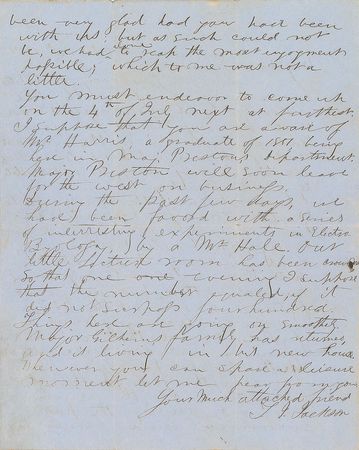 been very glad had you had been
with us, but as such could not
be, we had to reap the most enjoyment
possible; which to me was not a
little.
You must endeavor to come up
on the 4th of July next at farthest.
I suppose that you are aware of
Mr Harris, a graduate of 1851 being
here in Maj. Prestons department.
Major Preston will soon leave
for the west on business.
During the past few days, we
had been favored with a series
of interesting experiments in Electro
Byology, by a Mr Hall. Our
little lecture room has been
so that one one evening I suppose
that the number equaled, if it
did not surpass four hundred.
Things here are going on smoothly.
Major Gilhams family has returned,
and is living in his new house.
Whenever you can spare a leisure
moment let me hear from you
Your much attached friend
T. J. Jackson